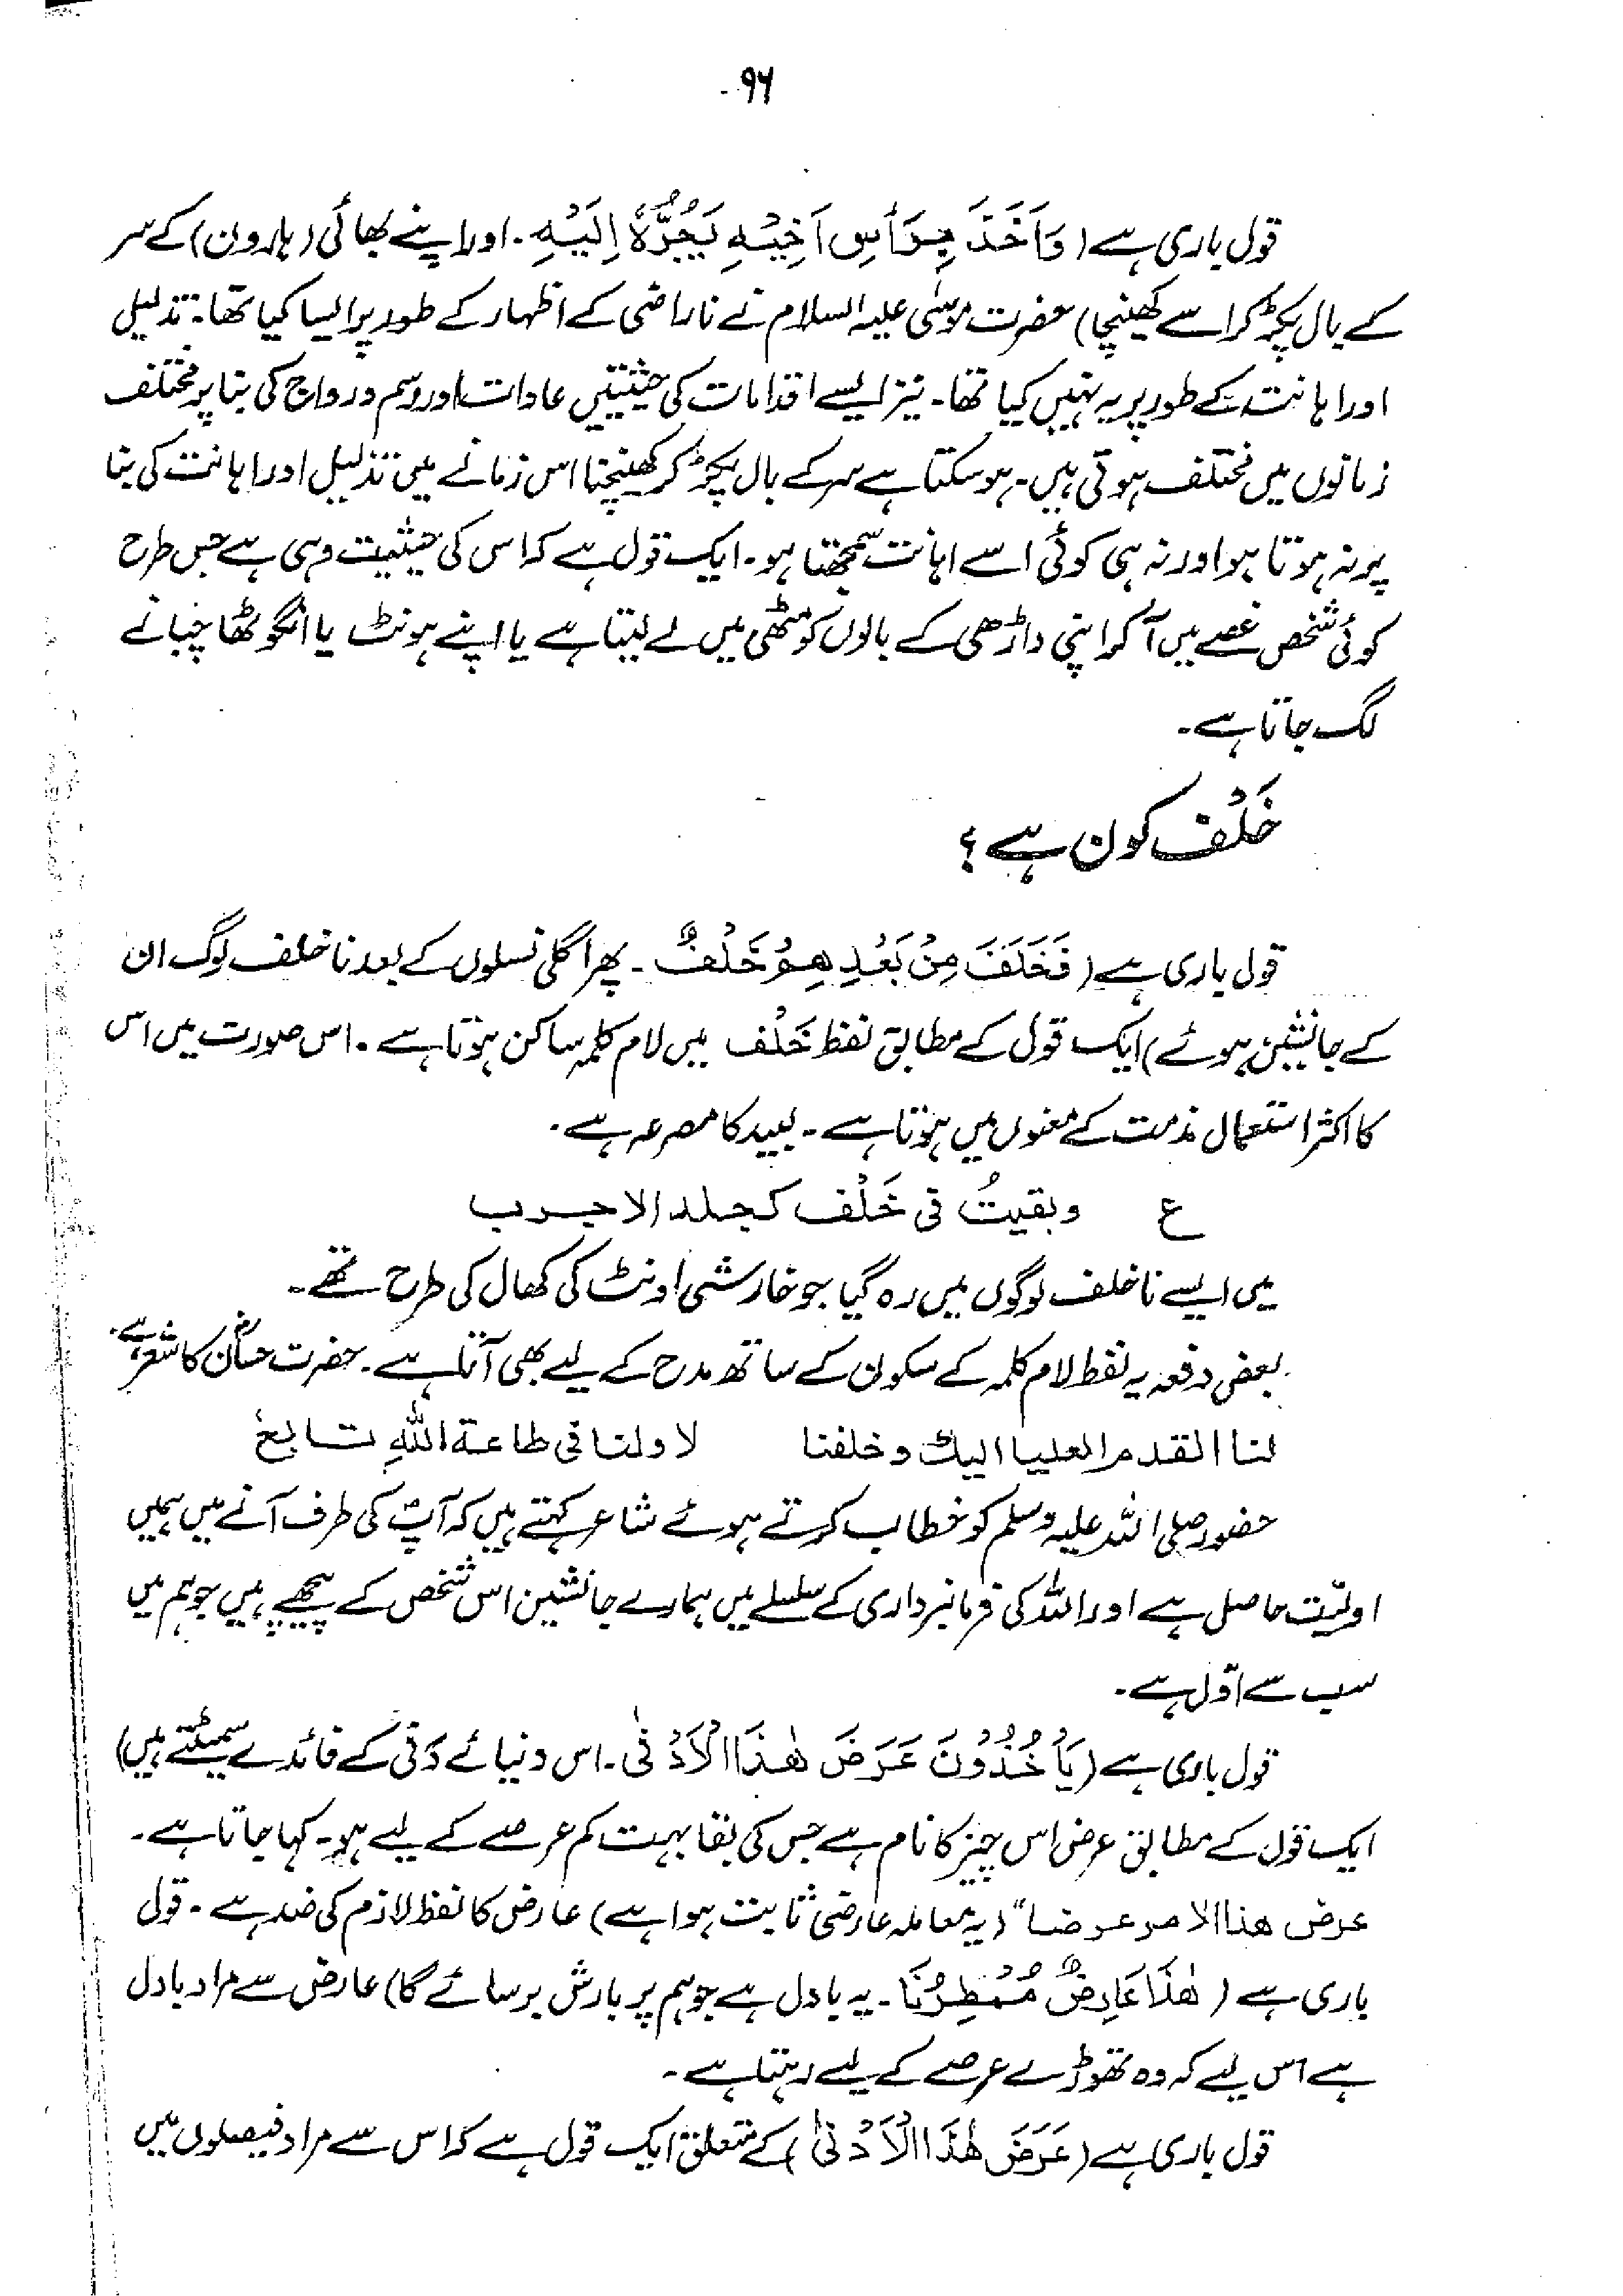 ۹۶
قول باری ہے (وَاَخَذَ بِرَأْسِ اَخِيْهِ يَجُرُّهٗ اِلَيْهِ۔ اور اپنے بھائی (ہارون) کے سر
کے بال پکڑ کر اسے کھینچا) حضرت موسیٰ علیہ السلام نے ناراضی کے اظہار کے طور پر ایسا کیا تھا۔ تذلیل
اور اہانت کے طور پر یہ نہیں کیا تھا۔ نیز ایسے اقدامات کی حیثیتیں عادات اور رسم و رواج کی بنا پر مختلف
زمانوں میں مختلف ہوتی ہیں۔ ہو سکتا ہے سر کے بال پکڑ کر کھینچنا اس زمانے میں تذلیل اور اہانت کی بنا
پر نہ ہوتا ہو اور نہ ہی کوئی اسے اہانت سمجھتا ہو۔ ایک قول ہے کہ اس کی حیثیت وہی ہے جس طرح
کوئی شخص غصے میں آ کر اپنی داڑھی کے بالوں کو مٹھی میں لے لیتا ہے یا اپنے ہونٹ یا انگوٹھا چبانے
لگ جاتا ہے۔
خَلْف کون ہے؟
قول باری ہے (فَخَلَفَ مِنْ بَعْدِهِمْ خَلْفٌ۔ پھر اگلی نسلوں کے بعد ناخلف لوگ ان
کے جانشین ہوئے) ایک قول کے مطابق لفظ خَلْف میں لام کلمہ ساکن ہوتا ہے۔ اس صورت میں اس
کا اکثر استعمال مذمت کے معنوں میں ہوتا ہے۔ لبید کا مصرعہ ہے۔
ع وبقيتُ في خَلْف كجلد الاجرب
میں ایسے ناخلف لوگوں میں رہ گیا جو خارشی اونٹ کی کھال کی طرح تھے۔
بعض دفعہ یہ لفظ لام کلمہ کے سکون کے ساتھ مدح کے لیے بھی آتا ہے۔ حضرت حسانؓ کا شعر ہے۔
لنا القدم العليا اليك وخلفنا لاولنا في طاعة اللّٰهِ تابعُ
حضور صلی اللہ علیہ وسلم کو خطاب کرتے ہوئے شاعر کہتے ہیں کہ آپؐ کی طرف آنے میں ہمیں
اولیّت حاصل ہے اور اللہ کی فرمانبرداری کے سلسلے میں ہمارے جانشین اس شخص کے پیچھے ہیں جو ہم میں
سب سے اوّل ہے۔
قول باری ہے (يَأْخُذُوْنَ عَرَضَ هٰذَا الْاَدْنٰى۔ اس دنیائے دَنی کے فائدے سمیٹتے ہیں)
ایک قول کے مطابق عرض اس چیز کا نام ہے جس کی بقا بہت کم عرصے کے لیے ہو۔ کہا جاتا ہے۔
عرض هذا الامر عرضا" (یہ معاملہ عارضی ثابت ہوا ہے) عارض کا لفظ لازم کی ضد ہے۔ قول
باری ہے (هٰذَا عَارِضٌ مُّمْطِرُنَا۔ یہ بادل ہے جو ہم پر بارش برسائے گا) عارض سے مراد بادل
ہے اس لیے کہ وہ تھوڑے عرصے کے لیے رہتا ہے۔
قول باری ہے (عَرَضَ هٰذَا الْاَدْنٰى) کے متعلق ایک قول ہے کہ اس سے مراد فیصلوں میں